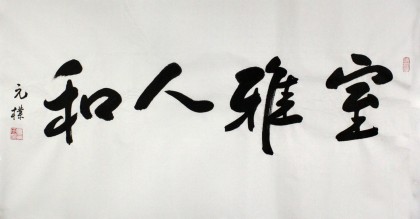 室雅人和
元樸